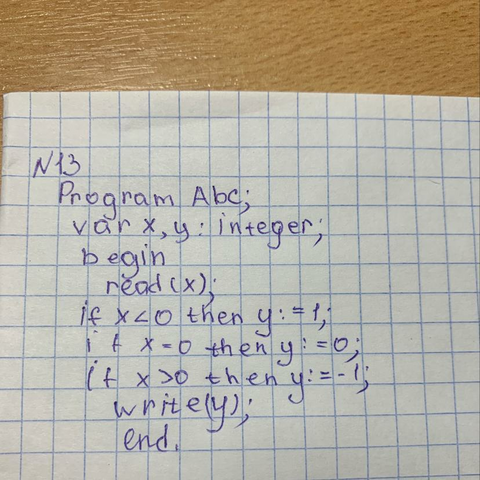 N13
Program Abc;
var x, y: integer;
begin
read(x);
if x<0 then y:=1;
if x=0 then y:=0;
if x>0 then y:=-1;
write(y);
end.